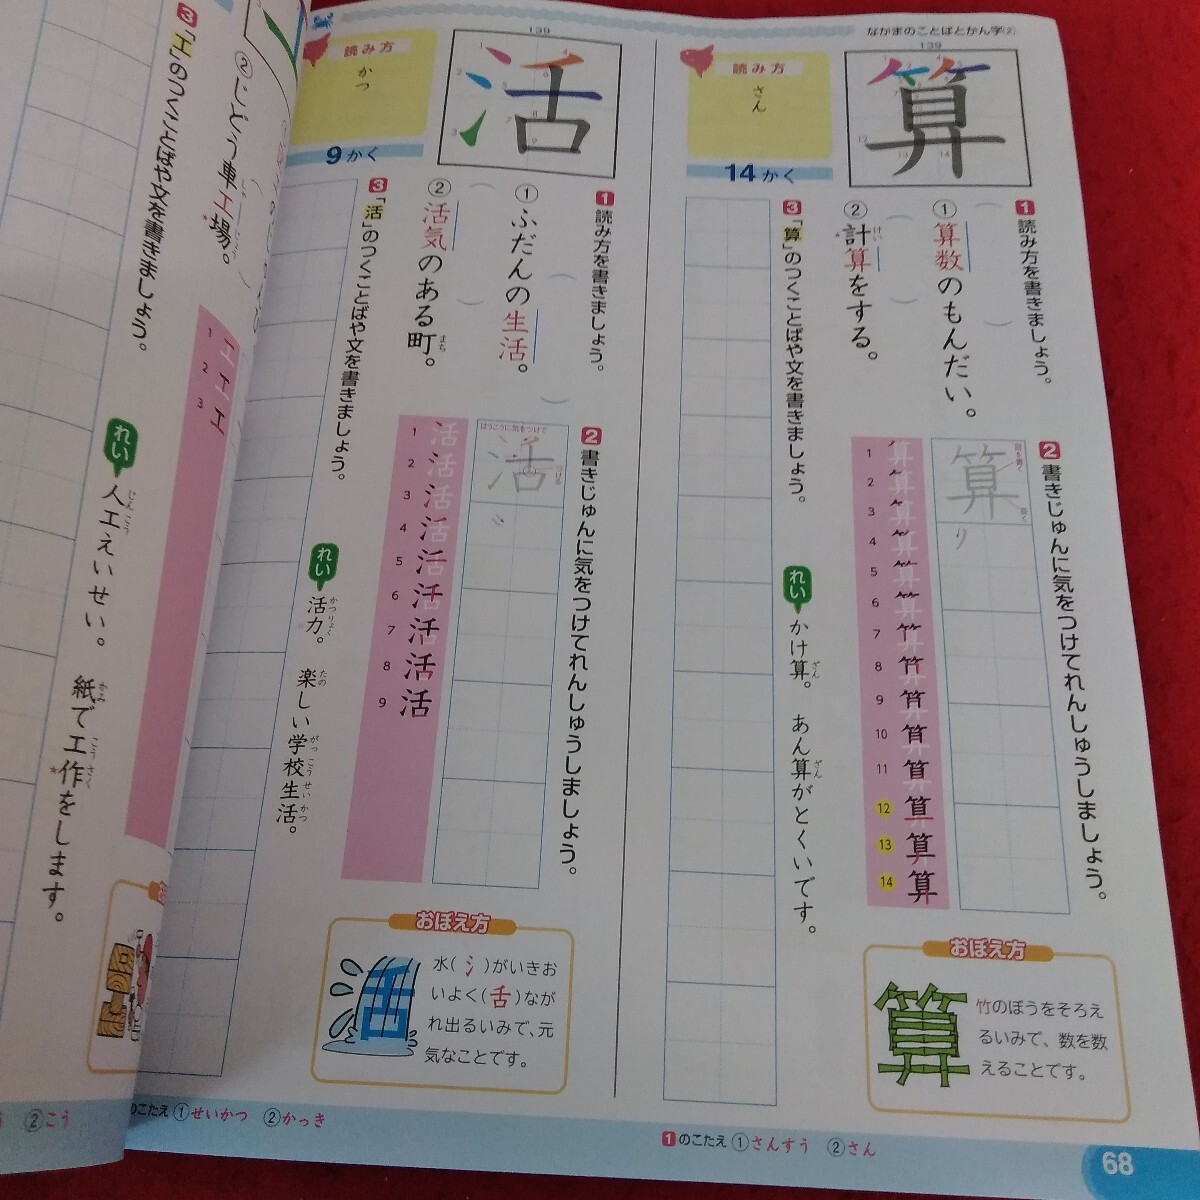 なかまのことばとかん字②
139
算
読み方
さん
14かく
1 読み方を書きましょう。
① 算数のもんだい。
② 計算をする。
けい
2 書きじゅんに気をつけてれんしゅうしましょう。
算
1
2
3
4
5
6
7
8
9
10
11
12
13
14
算
3 「算」のつくことばや文を書きましょう。
れい かけ算。 あん算がとくいです。
ざん
ざん
おぼえ方
算
竹のぼうをそろえ
るいみで、数を数
えることです。
1のこたえ ①さんすう ②さん
68
139
活
読み方
かつ
9かく
1 読み方を書きましょう。
① ふだんの生活。
② 活気のある町。
まち
2 書きじゅんに気をつけてれんしゅうしましょう。
ほうこうに気をつけて
活
1
2
3
4
5
6
7
8
9
活
3 「活」のつくことばや文を書きましょう。
れい 活力。 楽しい学校生活。
かつりょく
たの
がっこうせいかつ
おぼえ方
活
水(氵)がいきお
いよく(舌)なが
れ出るいみで、元
気なことです。
のこたえ ①せいかつ ②かっき
② じどう車工場。
しゃ
じょう
3 「工」のつくことばや文を書きましょう。
1 工
2 工
3 工
れい 人工えいせい。 紙で工作をします。
じんこう
かみ
こうさく
②こう